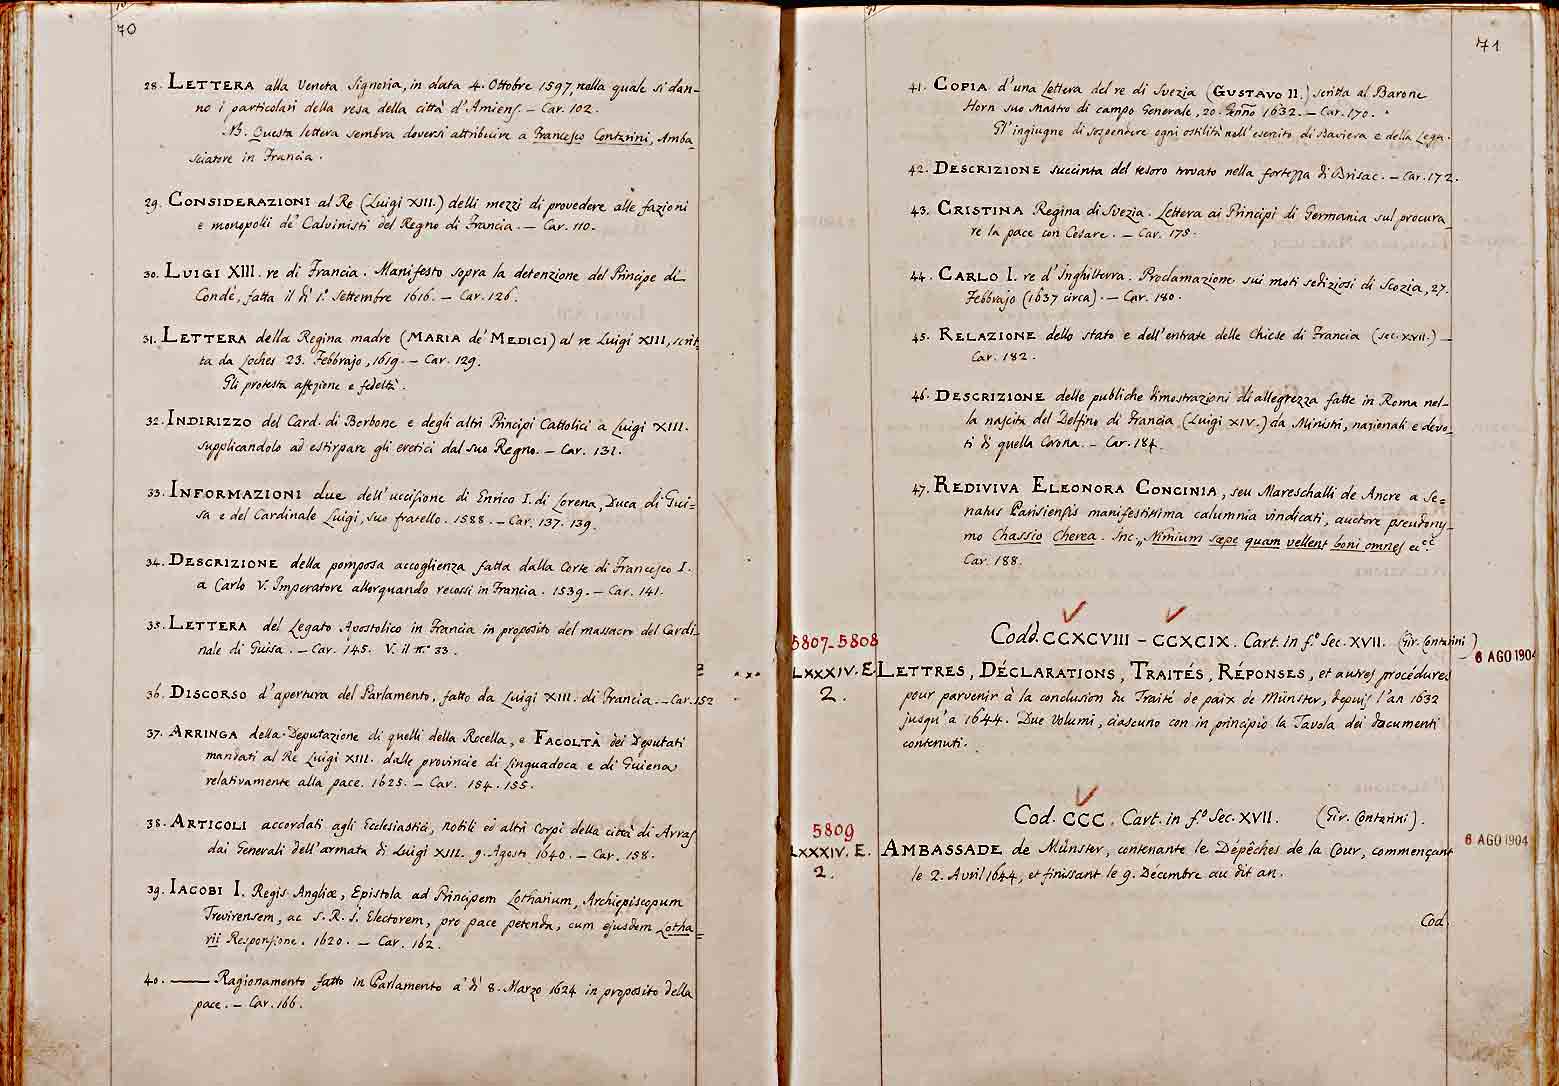 70
28. LETTERA alla Veneta Signoria, in data 4. Ottobre 1597, nella quale si dan-
no i particolari della resa della città d'Amiens. - Car. 102.
NB. Questa lettera sembra doversi attribuire a Francesco Contarini, Amba-
sciatore in Francia.
29. CONSIDERAZIONI al Re (Luigi XIII.) delli mezzi di provedere alle fazioni
e monopolii de' Calvinisti del Regno di Francia. - Car. 110.
30. LUIGI XIII. re di Francia. Manifesto sopra la detenzione del Principe di
Condè, fatta il dì 1.° Settembre 1616. - Car. 126.
31. LETTERA della Regina madre (MARIA de' MEDICI) al re Luigi XIII, scrit-
ta da Loches 23. Febbrajo, 1619. - Car. 129.
Gli protesta affezione e fedeltà.
32. INDIRIZZO del Card. di Borbone e degli altri Principi Cattolici a Luigi XIII.
supplicandolo ad estirpare gli eretici dal suo Regno. - Car. 131.
33. INFORMAZIONI due dell'uccisione di Enrico I. di Lorena, Duca di Gui=
sa e del Cardinale Luigi, suo fratello. 1588. - Car. 137. 139.
34. DESCRIZIONE della pomposa accoglienza fatta dalla Corte di Francesco I.
a Carlo V. Imperatore allorquando recossi in Francia. 1539. - Car. 141.
35. LETTERA del Legato Apostolico in Francia in proposito del massacro del Cardi-
nale di Guisa. - Car. 145. V. il n.° 33.
36. DISCORSO d'apertura del Parlamento, fatto da Luigi XIII. di Francia. - Car. 152
37. ARRINGA della Deputazione di quelli della Rocella, e FACOLTÀ dei Deputati
mandati al Re Luigi XIII. dalle provincie di Linguadoca e di Guiena
relativamente alla pace. 1625. - Car. 154. 155.
38. ARTICOLI accordati agli Ecclesiastici, nobili ed altri Corpi della città di Arras
dai Generali dell'armata di Luigi XIII. 9. Agosto 1640. - Car. 158.
39. IACOBI I. Regis Angliæ, Epistola ad Principem Lotharium, Archiepiscopum
Trevirensem, ac S. R. I. Electorem, pro pace petenda, cum ejusdem Lotha=
rii Responsione. 1620. - Car. 162.
40. ——— Ragionamento fatto in Parlamento a' dì 8. Marzo 1624 in proposito della
pace. - Car. 166.
71
41. COPIA d'una Lettera del re di Svezia (GUSTAVO II.) scritta al Barone
Horn suo Mastro di campo Generale, 20. Genn.° 1632. - Car. 170.
Gl'ingiugne di sospendere ogni ostilità nell'esercito di Baviera e della Lega.
42. DESCRIZIONE succinta del tesoro trovato nella fortezza di Brisac. - Car. 172.
43. CRISTINA Regina di Svezia. Lettera ai Principi di Germania sul procura-
re la pace con Cesare. - Car. 178.
44. CARLO I. re d'Inghilterra. Proclamazione sui moti sediziosi di Scozia, 27.
Febbrajo (1637 circa). - Car. 180.
45. RELAZIONE dello stato e dell'entrate delle Chiese di Francia (sec. XVII.) -
Car. 182.
46. DESCRIZIONE delle publiche dimostrazioni di allegrezza fatte in Roma nel-
la nascita del Delfino di Francia (Luigi XIV.) da Ministri, nazionali e devo-
ti di quella Corona. - Car. 184.
47. REDIVIVA ELEONORA CONCINIA, seu Mareschalli de Ancre a Se=
natus Parisiensis manifestissima calumnia vindicati, auctore pseudony-
mo Chassio Cherea. Inc. „Nimium sæpe quam vellent boni omnes ecc.
Car. 188.
Codd. CCXCVIII - CCXCIX. Cart. in f.° Sec. XVII. (Gir. Contarini)
5807-5808
LXXXIV. E.
2.
6 AGO 1904
LETTRES, DÉCLARATIONS, TRAITÉS, RÉPONSES, et autres procédures
pour parvenir à la conclusion du Traité de paix de Münster, depuis l'an 1632
jusqu'a 1644. Due Volumi, ciascuno con in principio la Tavola dei documenti
contenuti.
Cod. CCC. Cart. in f.° Sec. XVII. (Gir. Contarini).
5809
LXXXIV. E.
2.
6 AGO 1904
AMBASSADE de Münster, contenante le Dépêches de la Cour, commençant
le 2. Avril 1644, et finissant le 9. Decembre au dit an.
Cod.